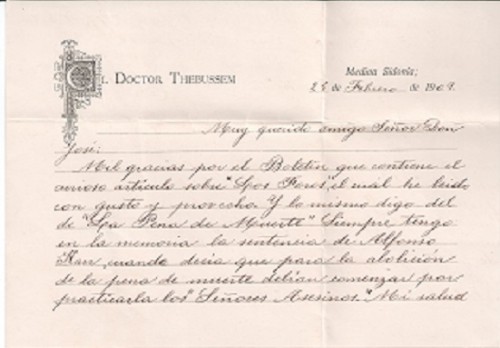 El Doctor Thebussem
Medina Sidonia;
28 de Febrero de 1909.
Muy querido amigo Señor Don
José:
Mil gracias por el Boletin que contiene el
curioso articulo sobre "Los Foros", el cual he leido
con gusto y provecho. Y lo mismo digo del
de "La Pena de Muerte" Siempre tengo
en la memoria la sentencia de Alfonso
Karr, cuando decia que para la abolición
de la pena de muerte debian comenzar por
practicarla los "Señores Asesinos." Mi salud